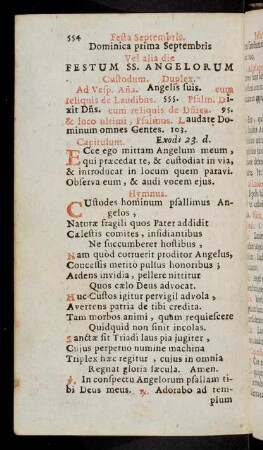 554 Festa Septembris.
Dominica prima Septembris
Vel alia die
FESTUM SS. ANGELORUM
Custodum. Duplex.
Ad Vesp. Aña. Angelis suis. cum
reliquis de Laudibus. 555. Psalm. Di-
xit Dñs. cum reliquis de Dñica. 95.
& loco ultimi, Psalmus. Laudate Do-
minum omnes Gentes. 103.
Capitulum. Exodi 23. d.
Ecce ego mittam Angelum meum,
qui præcedat te, & custodiat in via,
& introducat in locum quem paravi.
Observa eum, & audi vocem ejus.
Hymnus.
CUstodes hominum psallimus An-
gelos,
Naturæ fragili quos Pater addidit
Cælestis comites, insidiantibus
Ne succumberet hostibus,
Nam quòd corruerit proditor Angelus,
Concessis meritò pulsus honoribus;
Ardens invidia, pellere nittitur
Quos cælo Deus advocat.
Huc Custos igitur pervigil advola,
Avertens patria de tibi credita.
Tam morbos animi, quàm requiescere
Quidquid non sinit incolas.
Sanctæ sit Triadi laus pia jugiter,
Cujus perpetuo numine machina
Triplex hæc regitur, cujus in omnia
Regnat gloria sæcula. Amen.
℣. In conspectu Angelorum psallam ti-
bi Deus meus. ℟. Adorabo ad tem-
plum